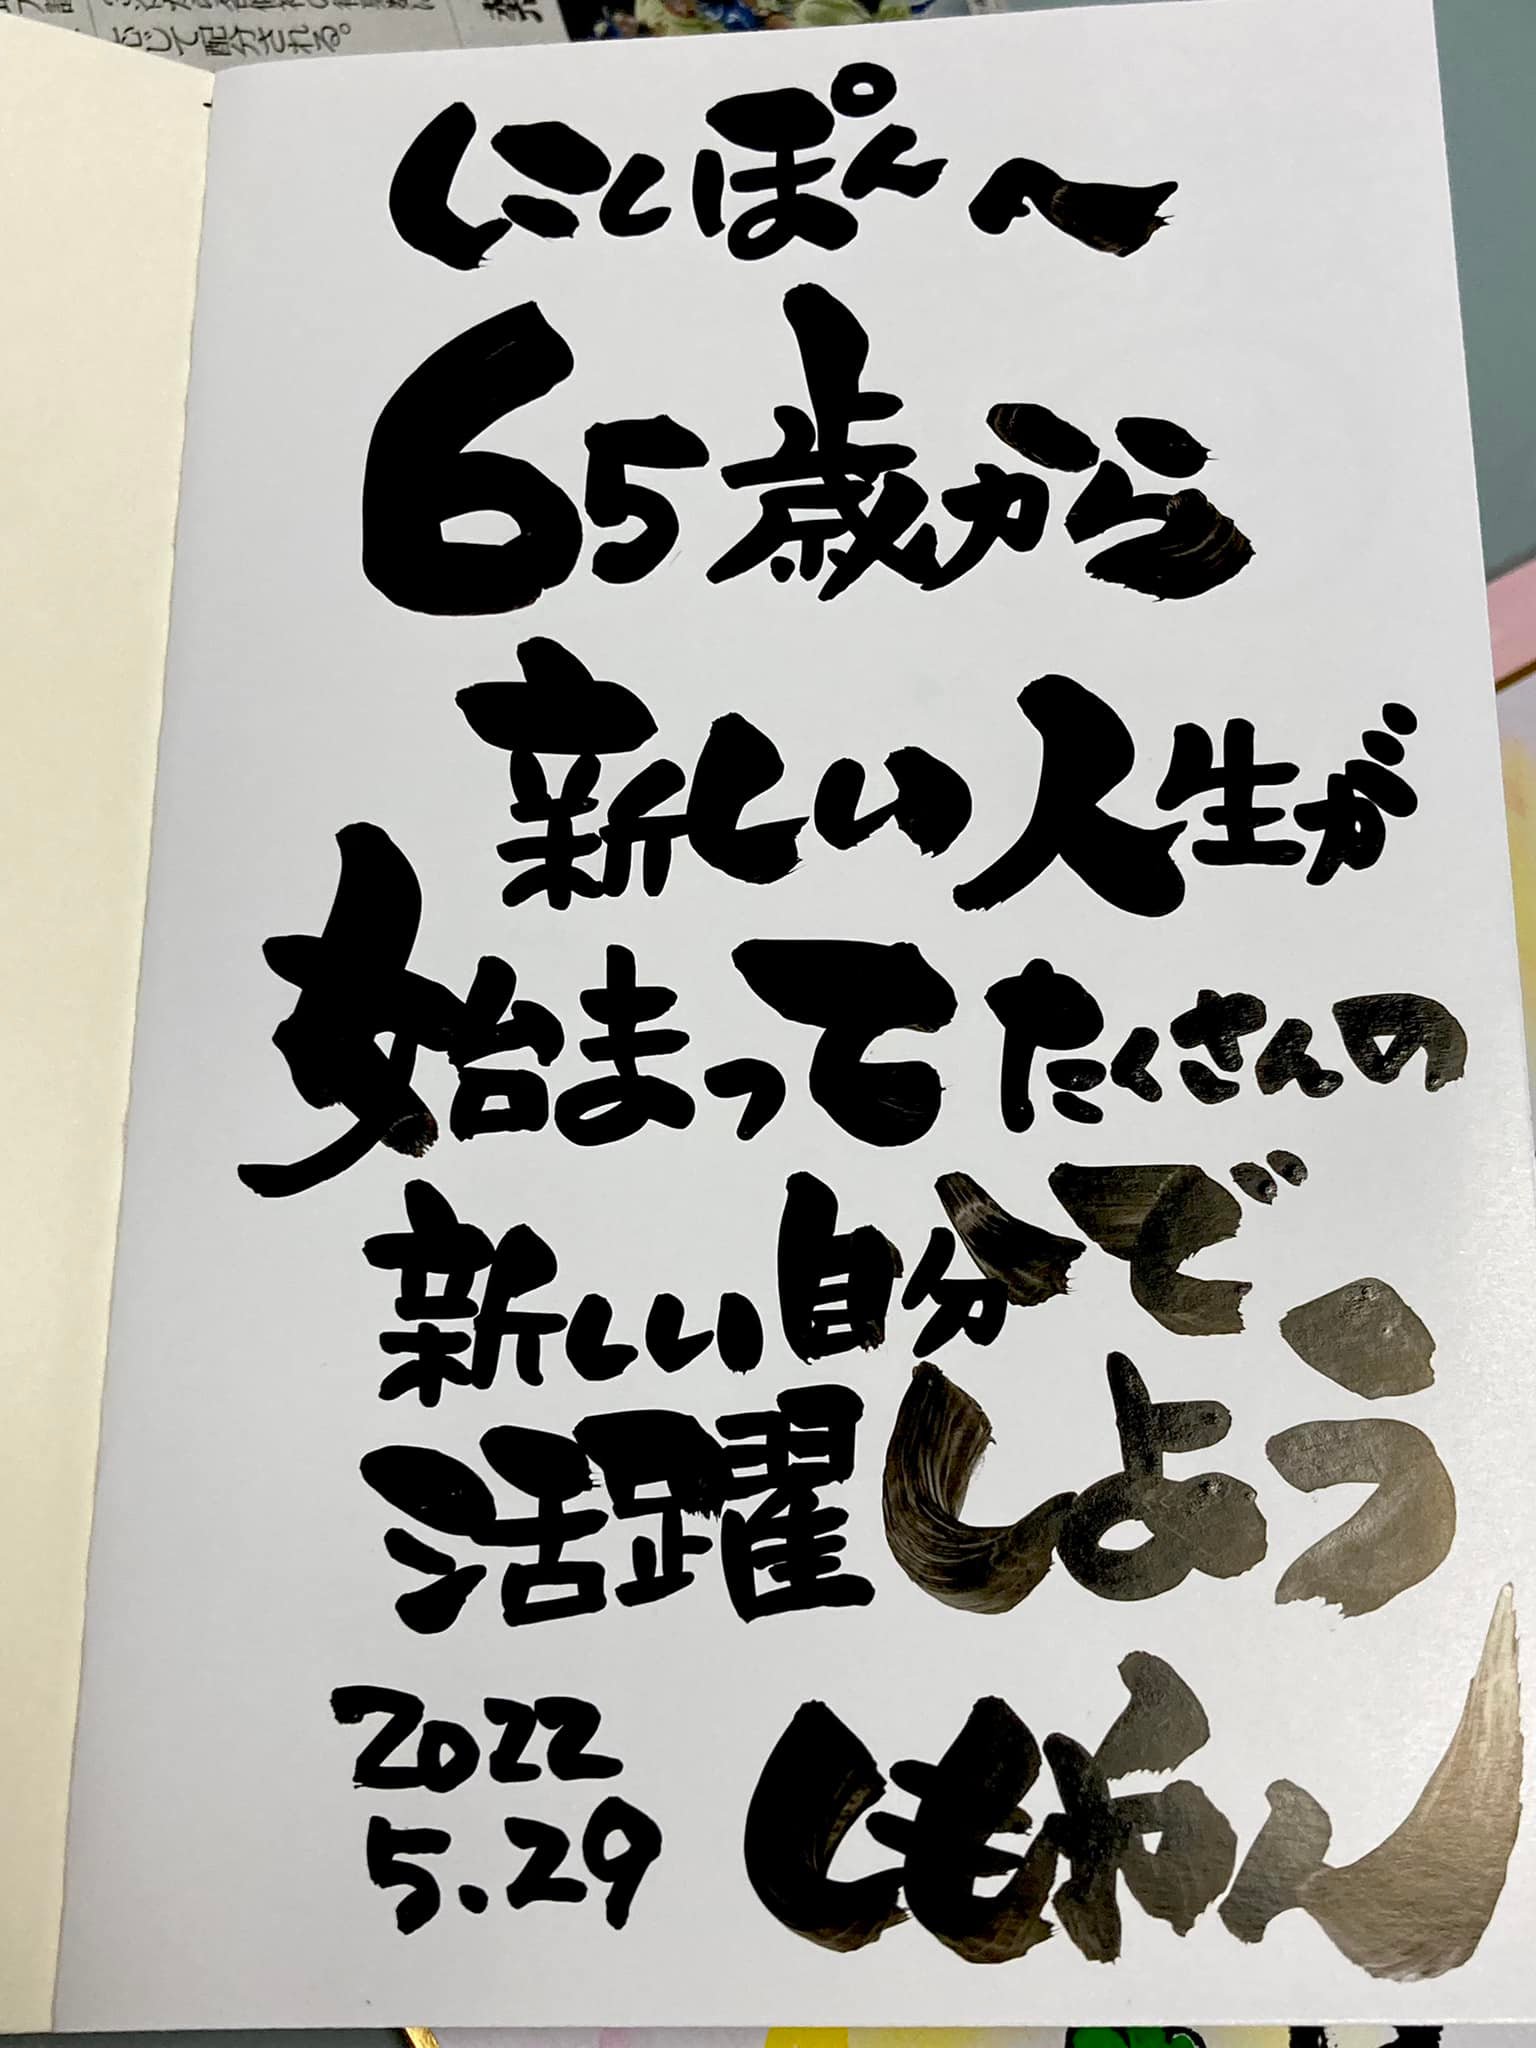 にしぽん〜
65歳から
新しい人生が
始まってたくさんの
新しい自分で
活躍しよう
2022
5.29
しもやん
じて配分される。